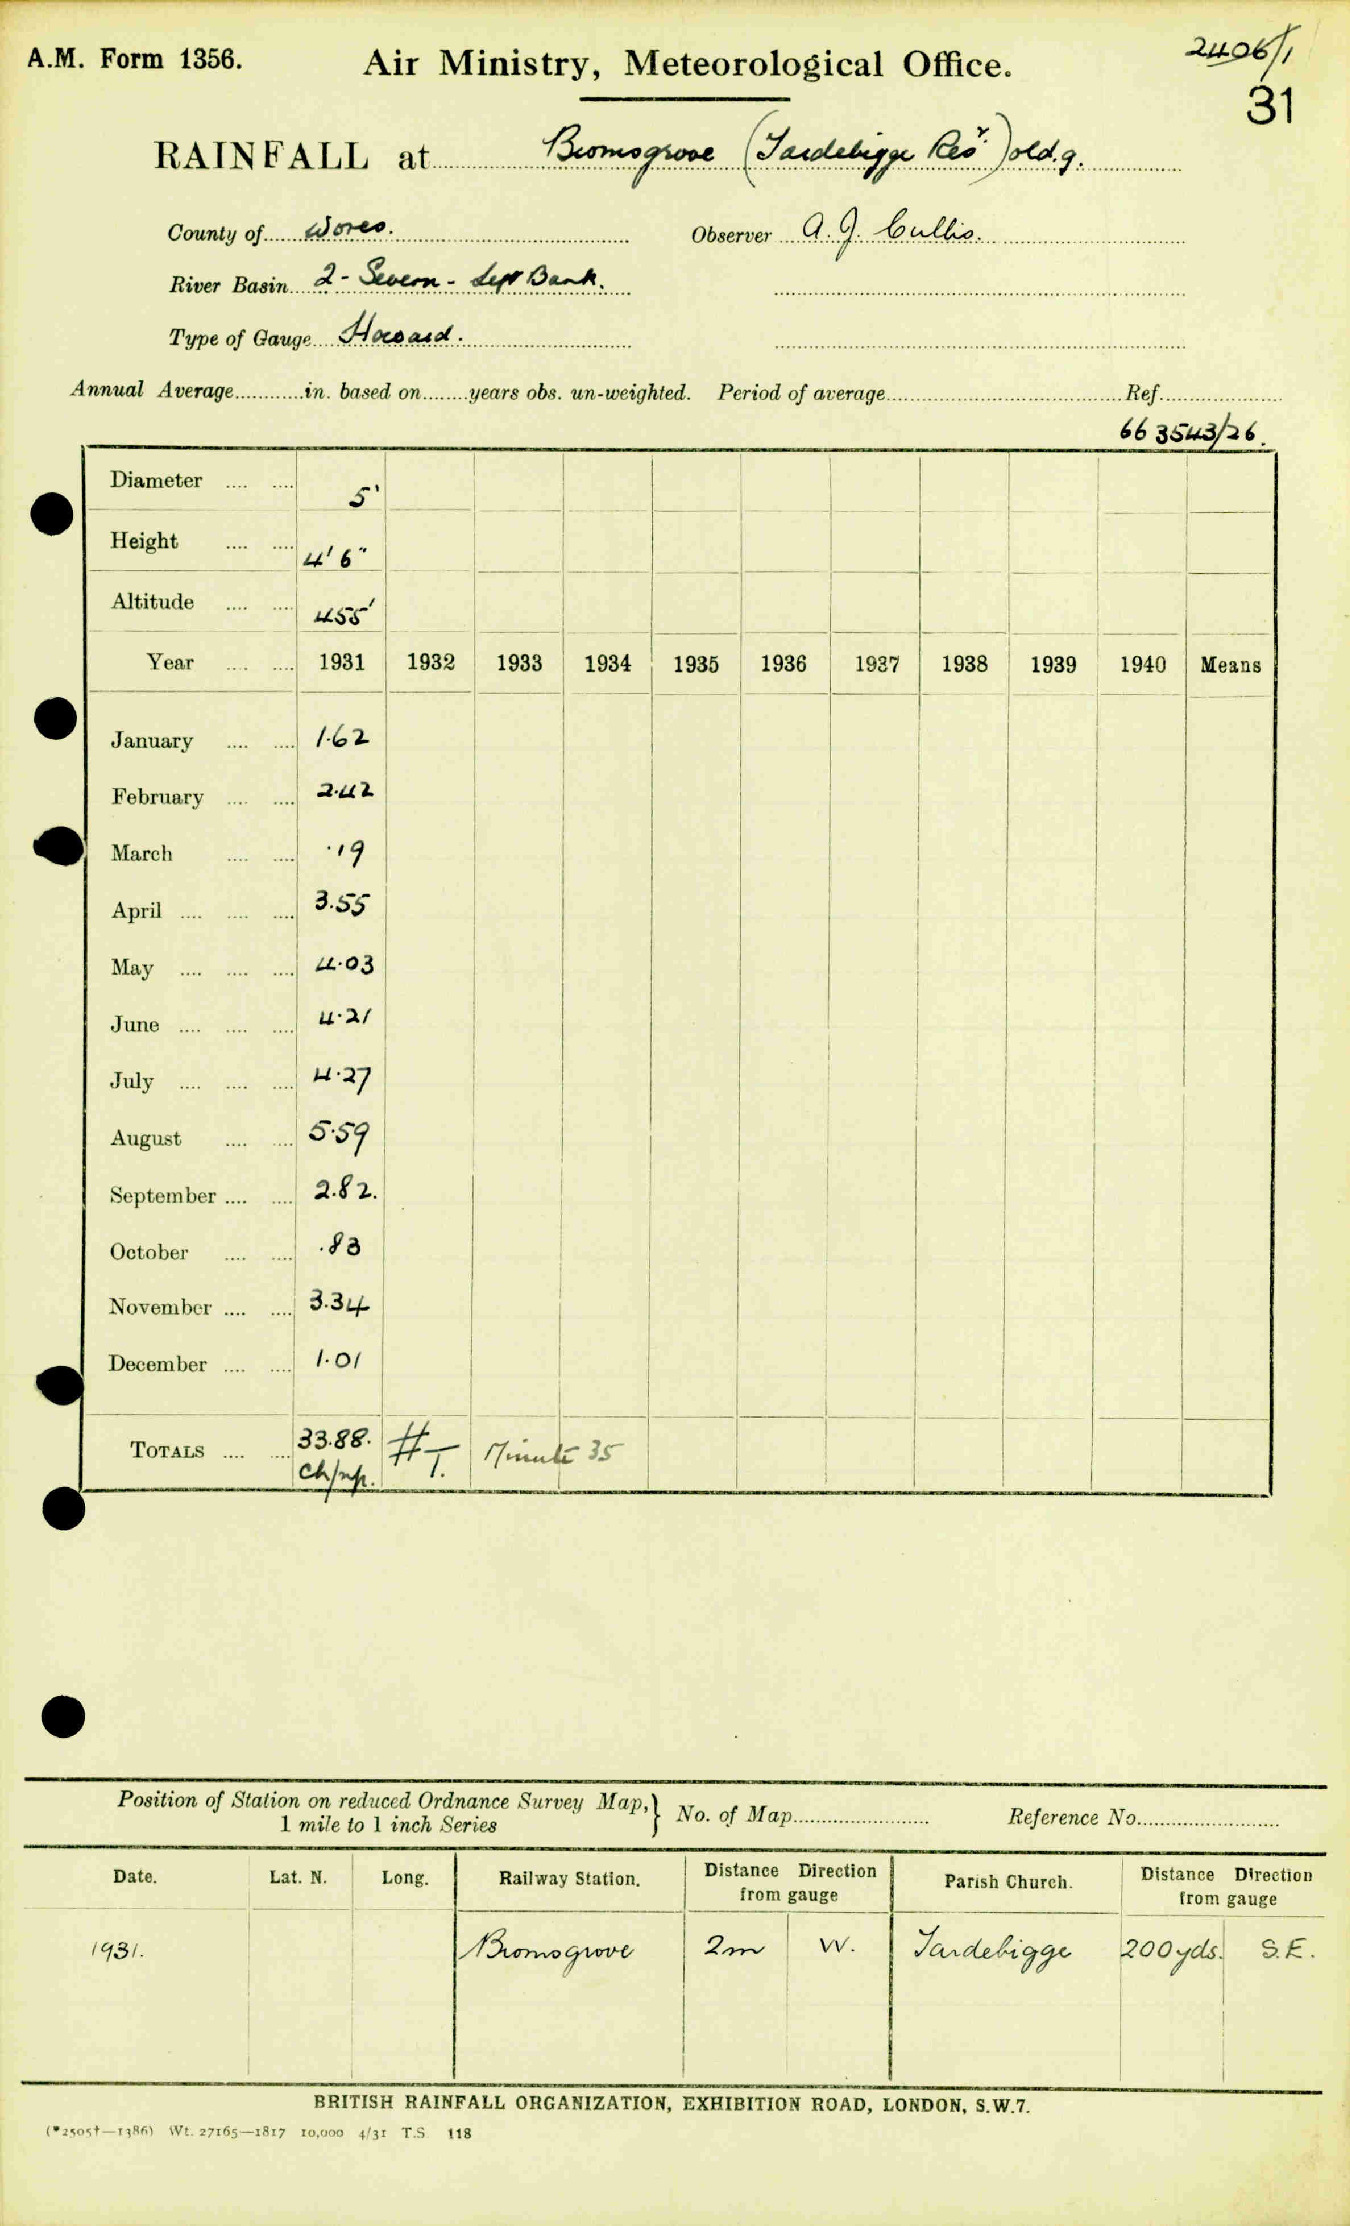 A.M. Form 1356. Air Ministry, Meteorological Office. 2406/1
31
RAINFALL at Bromsgrove (Tardebigge Resr.) old.g.
County of Worcs. Observer A. J. Cullis.
River Basin 2 - Severn - Left Bank.
Type of Gauge Howard.
Annual Average............in. based on........years obs. un-weighted. Period of average........................................Ref.....................
66 3543/26.
Diameter .... .... 5'
Height .... .... 4' 6"
Altitude .... .... 455'
Year .... .... 1931 1932 1933 1934 1935 1936 1937 1938 1939 1940 Means
January .... .... 1.62
February .... .... 2.42
March .... .... .19
April .... .... .... 3.55
May .... .... .... 4.03
June .... .... .... 4.21
July .... .... .... 4.27
August .... .... 5.59
September .... .... 2.82.
October .... .... .83
November .... .... 3.34
December .... .... 1.01
TOTALS .... .... 33.88. # T. Minute 35
Position of Station on reduced Ordnance Survey Map, } No. of Map........................ Reference No.........................
1 mile to 1 inch Series
Date. Lat. N. Long. Railway Station. Distance Direction from gauge Parish Church. Distance Direction from gauge
1931. Bromsgrove 2m W. Tardebigge 200yds. S.E.
BRITISH RAINFALL ORGANIZATION, EXHIBITION ROAD, LONDON, S.W.7.
(*2505†—1386) Wt. 27165—1817 10,000 4/31 T.S. 118